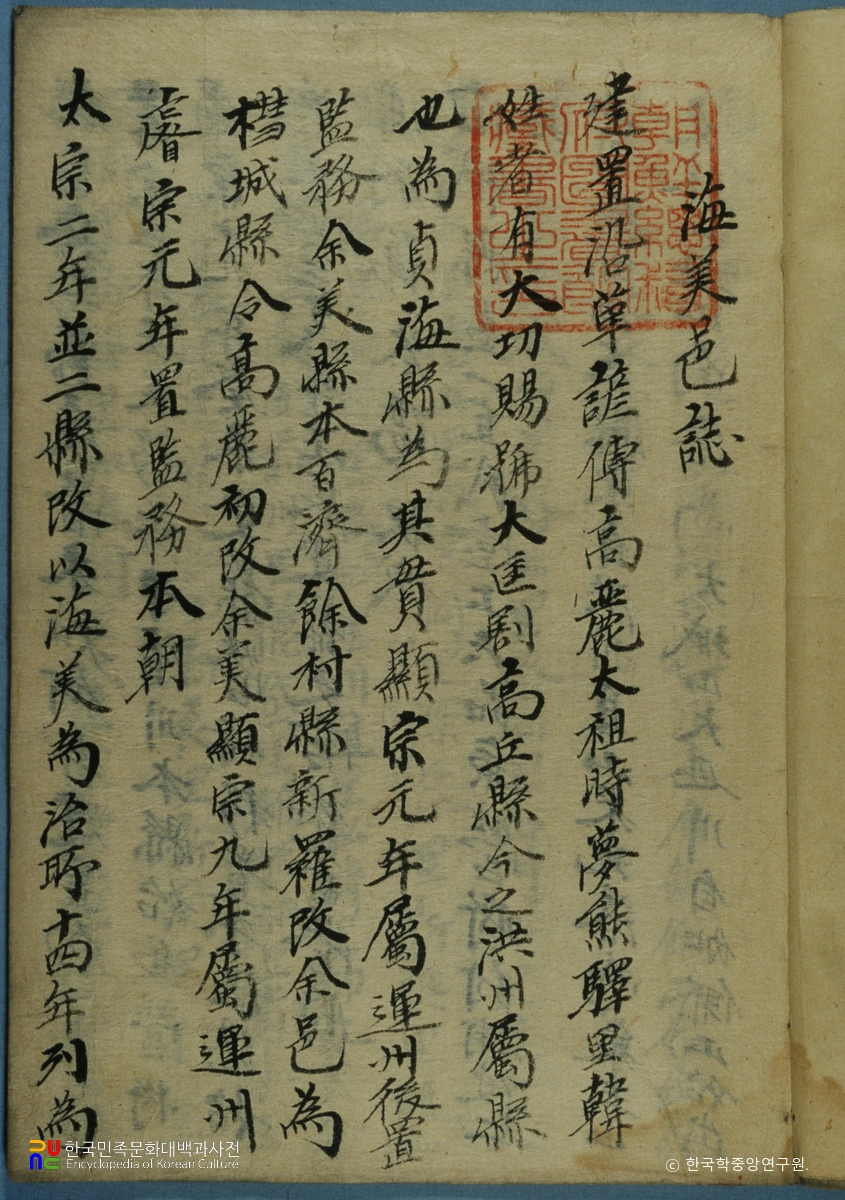 海美邑誌
建置沿革諺傳高麗太祖時夢熊驛里韓
姓者有大功賜號大匡割高丘縣今之洪州屬縣
也為貞海縣為其貫顯宗元年屬運州後置
監務余美縣本百濟餘村縣新羅改余邑為
槥城縣令高麗初改余美顯宗九年屬運州
睿宗元年置監務本朝
太宗二年並二縣改以海美為治所十四年列為
한국민족문화대백과사전
Encyclopedia of Korean Culture
ⓒ 한국학중앙연구원.